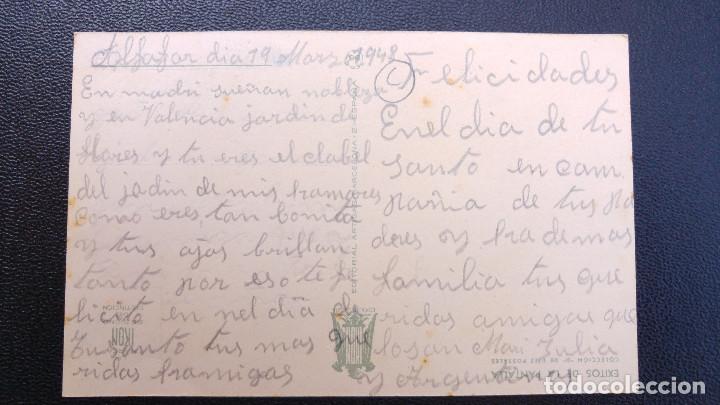 Alfafar dia 19 Marzo 1948
En madri sueñan nobleza
y en Valencia jardin de
flores y tu eres el clabel
del jardin de mis hamores
como eres tan bonita
y tus ojos brillan
tanto por eso te fe
licito en nel dia de
tu santo tus mas que
ridas hamigas
Felicidades
En el dia de tu
santo en com
pañia de tus pa
deres y hademas
familia tus que
ridas amigas que
lo san Mari Julia
y Argen
EDITORIAL ARTI BARCELONA - ESPAÑA
IKON
EXITOS DE LA PANTALLA
COLECCIÓN "B" DE DIEZ POSTALES
todocoleccion